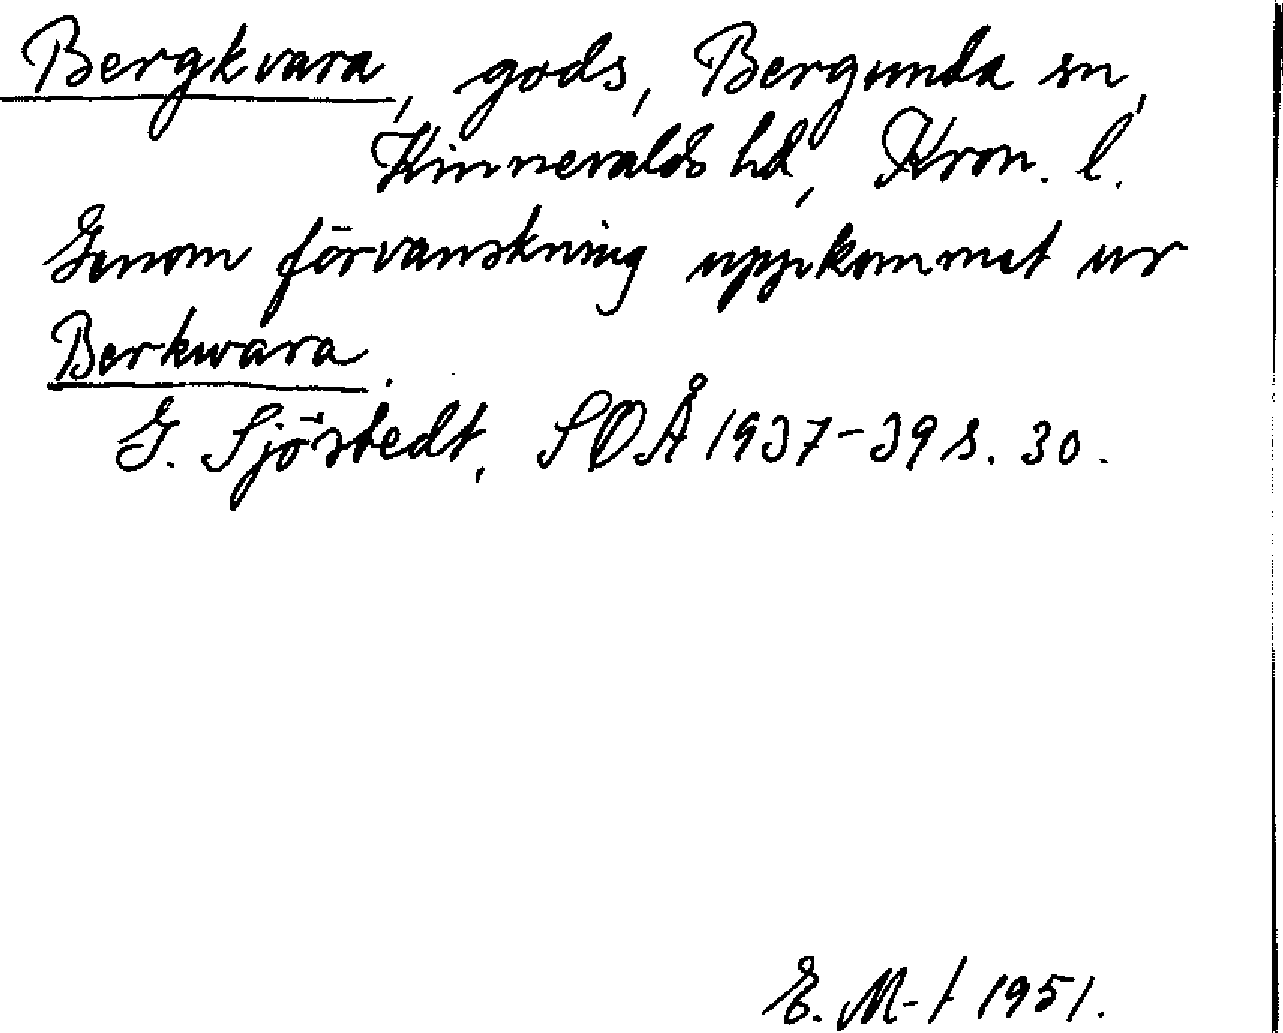 Bergkvara, gods, Bergunda sn,
Kinnevalds hd, Kron. l.
Genom förvanskning uppkommet ur
Berkwara.
G. Sjöstedt, SOÅ 1937-39 s. 30.
E. M-t 1951.